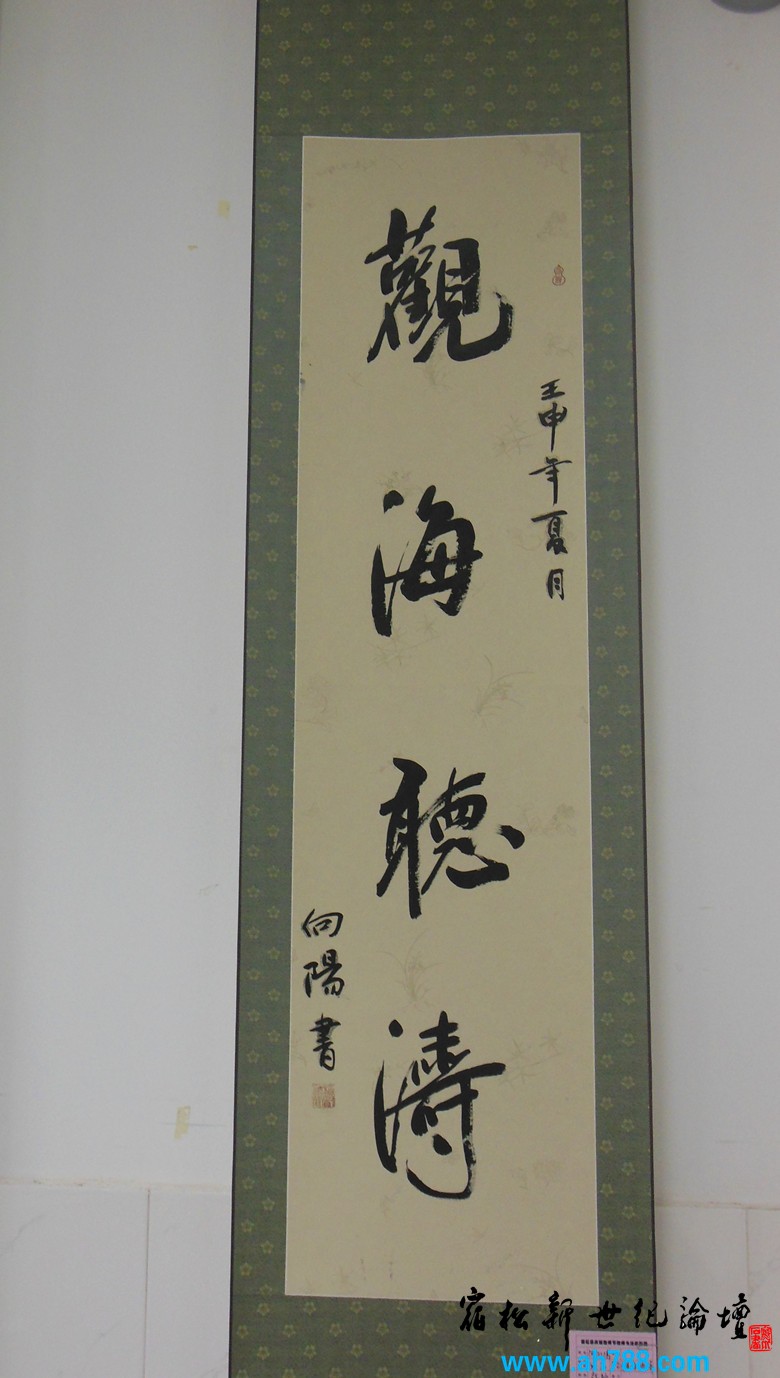 壬申年夏月
觀海聽濤
向陽書
宿松新世纪論壇
www.ah788.com